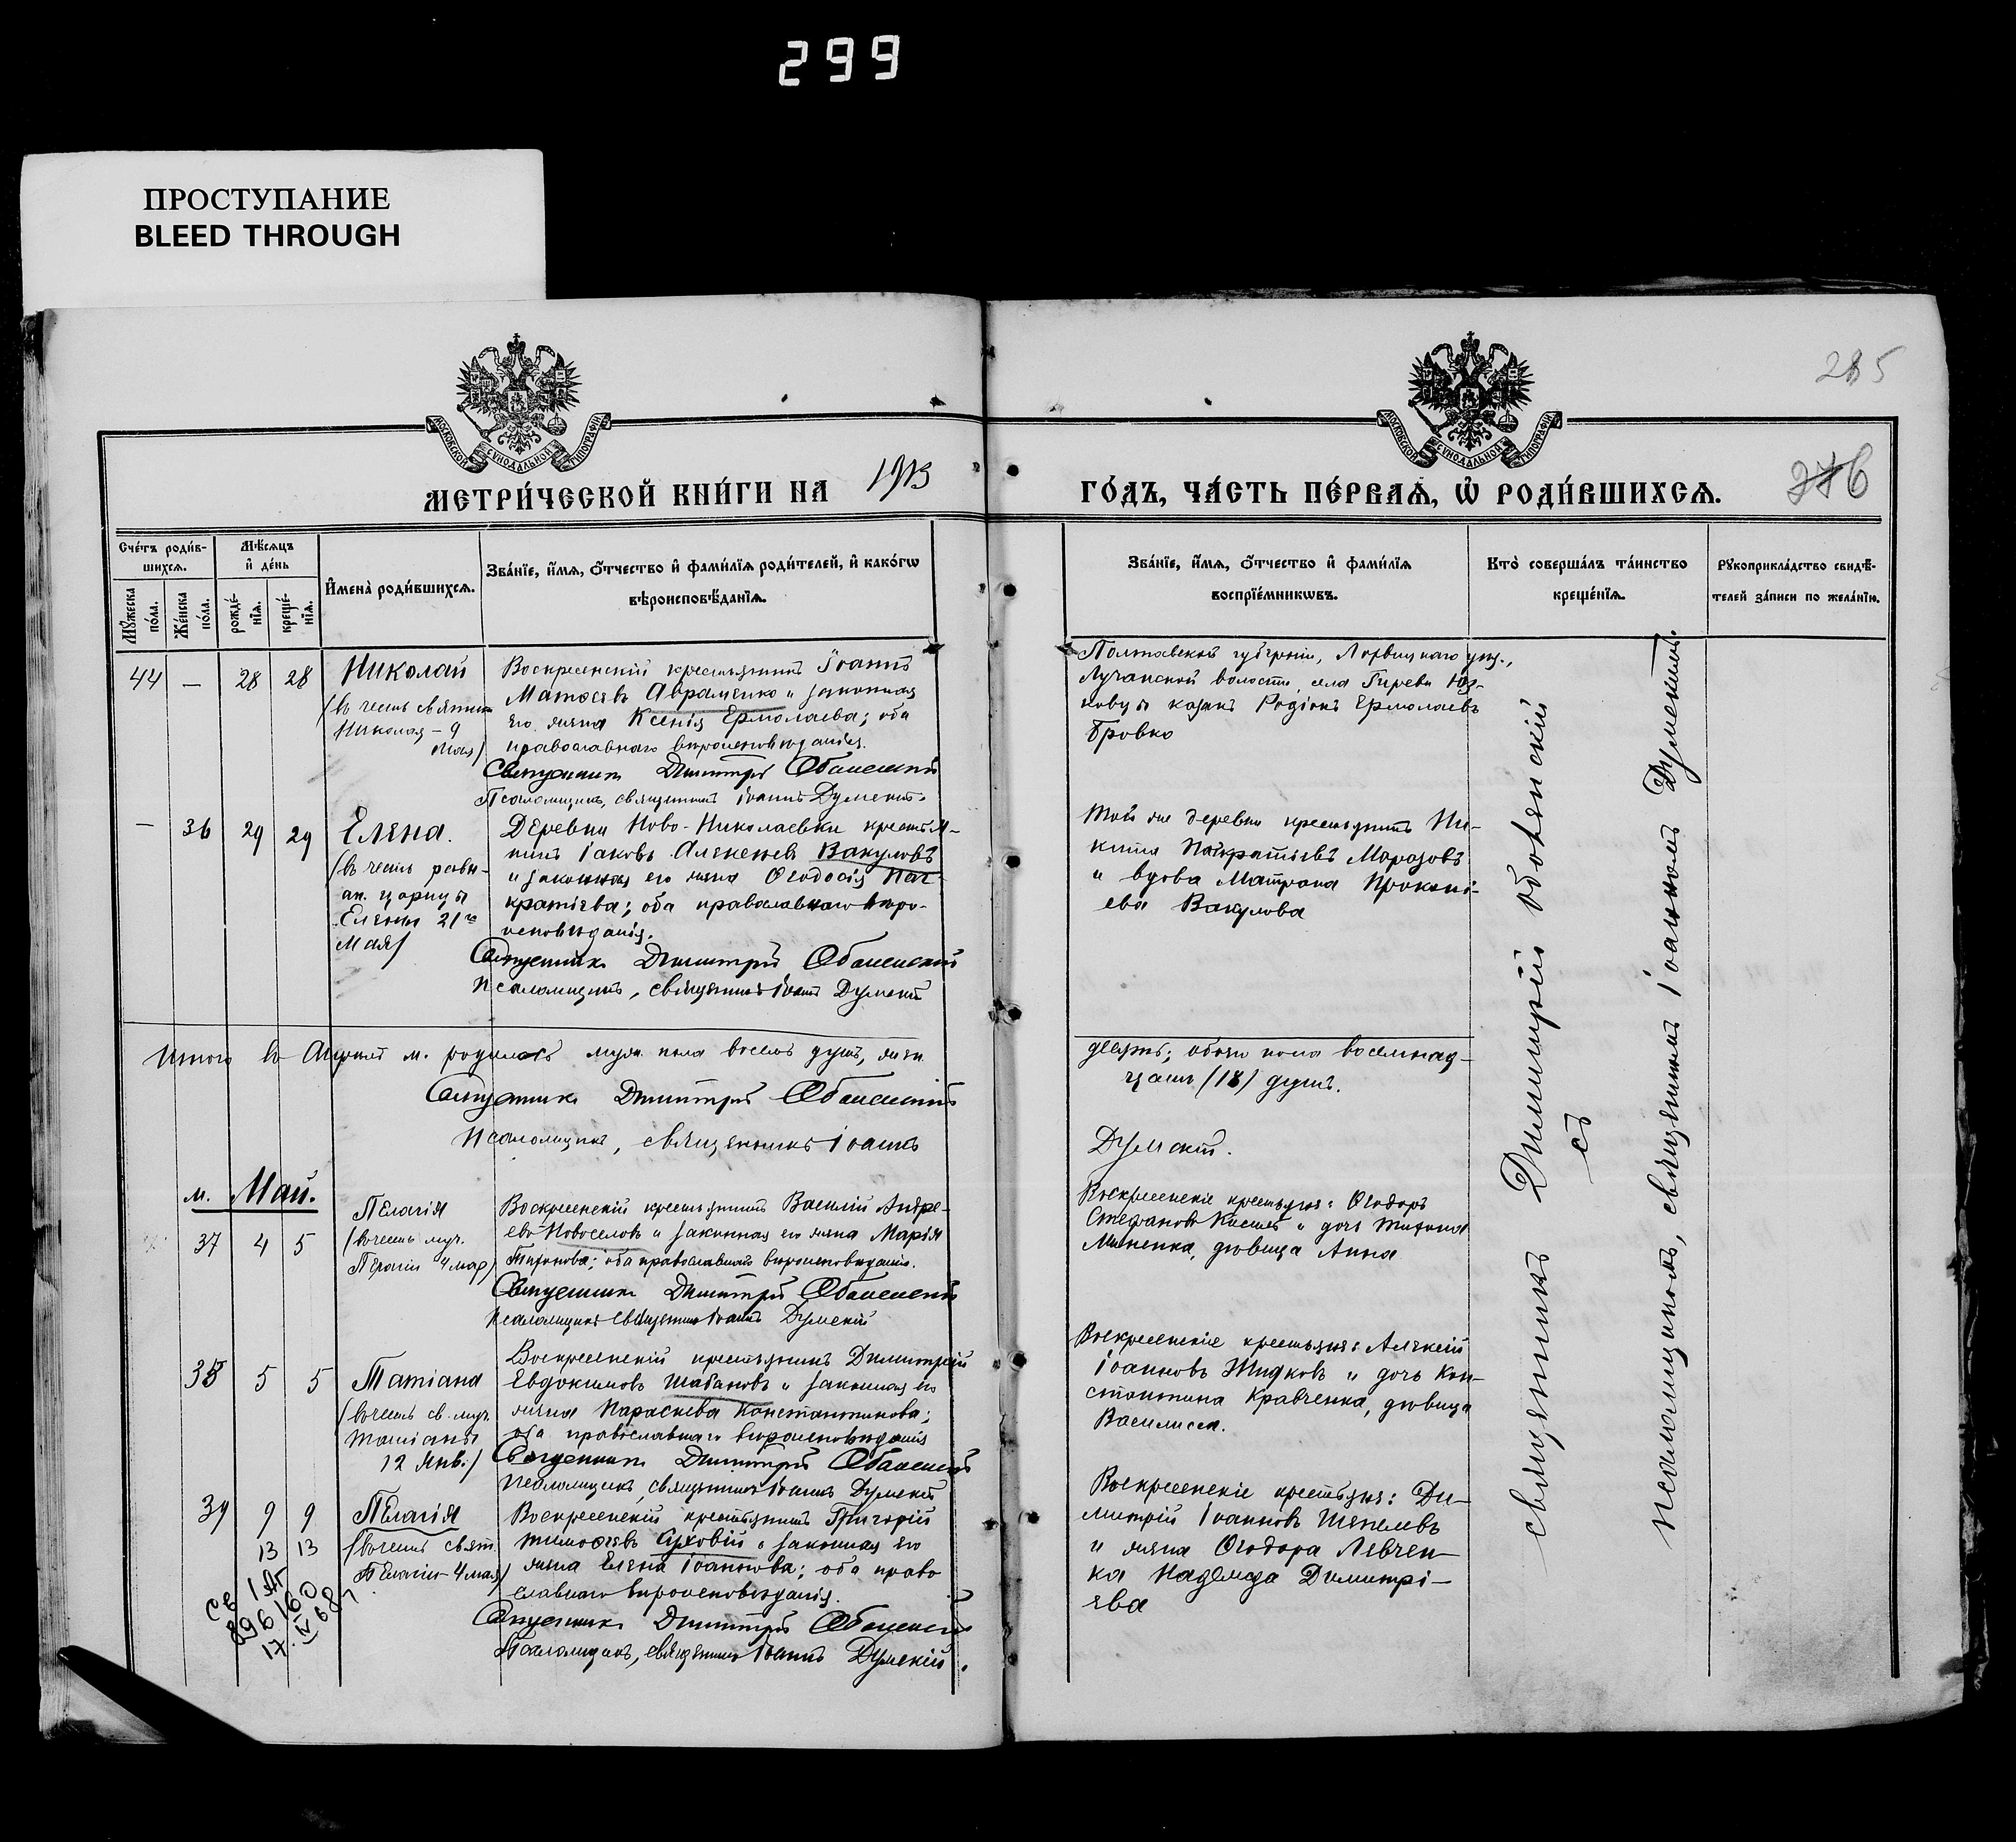 299
ПРОСТУПАНИЕ
BLEED THROUGH
285
276
МОСКОВСКОЙ СѴНОДАЛЬНОЙ ТИПОГРАФІИ
МОСКОВСКОЙ СѴНОДАЛЬНОЙ ТИПОГРАФІИ
МЕТРИ́ЧЕСКОЙ КНИ́ГИ НА 1913
ГО́ДЪ, ЧА́СТЬ ПЕ́РВАѦ, Ѡ҆ РОДИ́ВШИХСѦ.
Сче́тъ роди́в-
шихсѧ.
Мѣ́сѧцъ
и҆ де́нь
И҆мена̀ роди́вшихсѧ.
Зва́нїе, и҆́мѧ, ѻ҆́тчество и҆ фами́лїѧ роди́телей, и҆ како́гѡ
вѣроисповѣ́данїѧ.
Мꙋ́жеска
по́ла.
Же́нска
по́ла.
рожде́-
нїѧ.
креще́-
нїѧ.
Зва́нїе, и҆́мѧ, ѻ҆́тчество и҆ фами́лїѧ
воспрїе́мникѡвъ.
Кто̀ соверша́лъ та́инство
креще́нїѧ.
Рꙋкоприкла́дство свидѣ́-
телей за́писи по жела́нїю.
44 — 28 28 Николай
(въ честь святит.
Николая – 9
мая)
Воскресенскій крестьянинъ Іоаннъ
Матѳеевъ Авраменко и законная
его жена Ксенія Ермолаева; оба
православнаго вѣроисповѣданія.
Священникъ Димитрій Оболенскій
Псаломщикъ, священникъ Іоаннъ Думскій.
Полтавской губерніи, Лохвицкаго уѣз.,
Лучанской волости, села Гиреви
козакъ Родіонъ Ермолаевъ
Бровко
— 36 29 29 Елена.
(въ честь равн-
ап. царицы
Елены 21го
Мая)
Деревни Ново-Николаевки крестья-
нинъ Іаковъ Алексеевъ Вакуловъ
и законная его жена Ѳеодосія Пан-
кратіева; оба православнаго вѣро-
исповѣданія.
Священникъ Димитрій Оболенскій
Псаломщикъ, священникъ Іоаннъ Думскій
Той же деревни крестьянинъ Ни-
кита Панкратіевъ Марозовъ
и вдова Матрона Прокопі-
ева Вакулова
Итого въ Апрѣлѣ м. родилось муж. пола восемь душъ, жен.
девять; обоего пола восемнад-
цать (18) душъ.
Священникъ Димитрій Оболенскій
Псаломщикъ, священникъ Іоаннъ
Думскій.
м. Май.
37 4 5 Пелагія
(въ честь муч.
Пелагіи 4 мая)
Воскресенскій крестьянинъ Василій Андре-
евъ Новоселовъ и законная его жена Марія
Тихонова; оба православнаго вѣроисповѣданія.
Священникъ Димитрій Оболенскій
Псаломщикъ священникъ Іоаннъ Думскій
Воскресенскіе крестьяне: Ѳеодоръ
Стефановъ и дочь Тихона
Миненка, дѣвица Анна
38 5 5 Татіана
(въ честь св. муч.
Татіаны
12 Янв.)
Воскресенскій крестьянинъ Димитрій
Евдокимовъ Шабановъ и законная его
жена Параскева Константинова;
оба православнаго вѣроисповѣданія
Священникъ Димитрій Оболенскій
Псаломщикъ, священникъ Іоаннъ Думскій
Воскресенскіе крестьяне: Алексій
Іоанновъ Жидковъ и дочь Кон-
стантина Кравченка, дѣвица
Василисса.
39 9 9 Пелагія
13 13 (въ честь свят.
Пелагіи 4 мая)
Воскресенскій крестьянинъ Григорій
Тимоѳеевъ Суховій и законная его
жена Елена Іоаннова; оба право
славнаго вѣроисповѣданія.
Священникъ Димитрій Оболенскій
Псаломщикъ, священникъ Іоаннъ Думскій.
Воскресенскіе крестьяне: Ди-
митрій Іоанновъ Шепелевъ
и жена Ѳеодора Левчен-
ка Надежда Димитрі-
ева
896160
17.IV
священникъ Димитрій Оболенскій
съ
псаломщикомъ, священникомъ Іоанномъ Думскимъ.